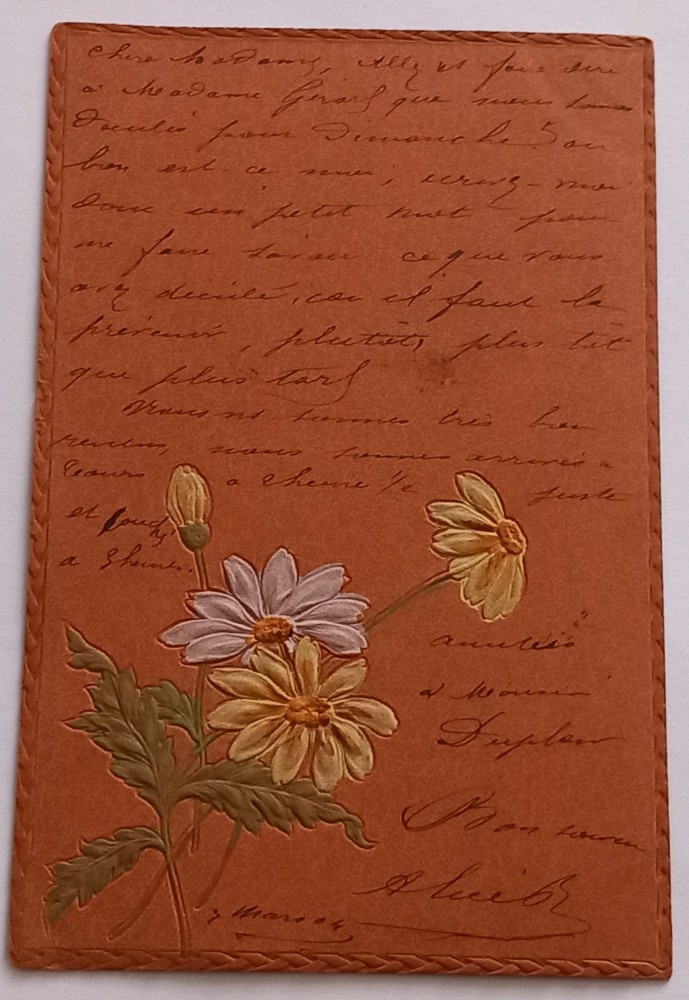 Chère Madame,
à Madame Gérard que nous sommes
décidés pour Dimanche? ou
bien est-ce moi, écrivez-moi
donc un petit mot pour
me faire savoir ce que vous
avez décidé, car il faut la
prévenir, plutôt, plus tôt
que plus tard
Nous sommes très bien
rendus, nous sommes arrivés à
Tours à 2 heure 1/2 juste
et
à 8 heures.
amitiés
à Monsieur
Bon
Mars 04